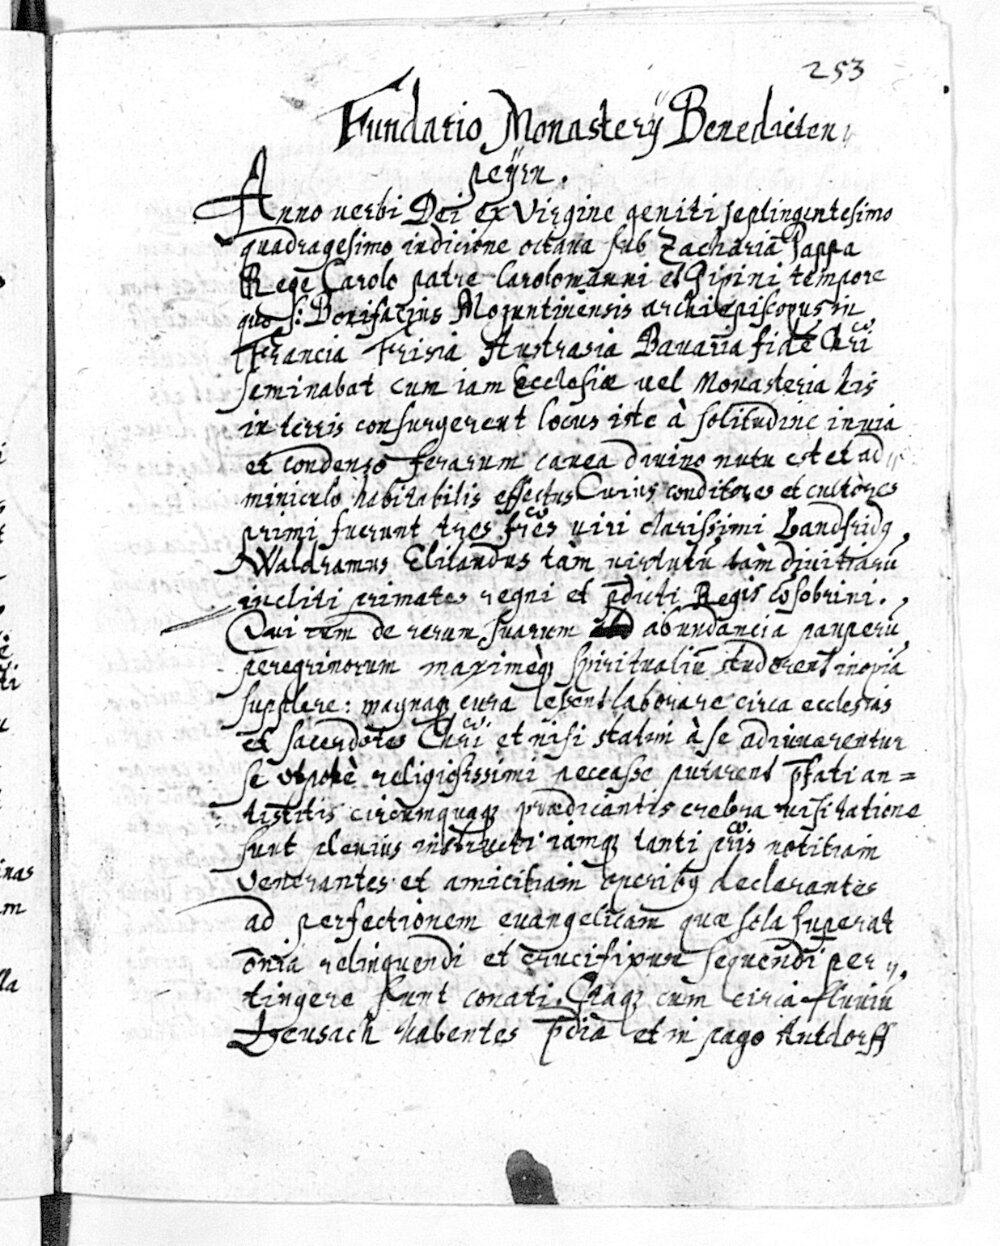 253
Fundatio Monasterij Benedicten
peijrn.
Anno verbi Dei ex Virgine geniti septingentesimo
quadragesimo indicione octava sub Zacharia Pappa
Rege Carolo patre Carolomanni et Pipini tempore
quo S: Bonifacius Moguntinensis archiepiscopus in
Francia Frisia Austrasia Bavaria fidē Chri
seminabat cum iam Ecclesiæ vel Monasteria his
in terris consurgerent locus iste à solitudine invia
et condenso ferarum cavea divino nutu est et ad
miniculo habitabilis effectus Cuius conditores et cultores
primi fuerunt tres frēs viri clarissimi Landfridq
Waldramus Elilandus tam virtutū tàm divitiarū
incliti primates regni et pdicti Regis cōsobrini.
Qui tem de rerum suarum abundancia pauperū
peregrinorum maximèq spiritualiū studerent inopiā
supplere: magnaq cura lebent laborare circa ecclesias
et sacerdotes Chri et nisi statim à se adiuvarentur
se utpotè religiosissimi peccasse putarent pfati an=
tistitis circumquaq prædicantis crebra visitatione
sunt plenius instructi iamq tanti pris notitiam
venerantes et amicitiam operibq declarantes
ad perfectionem evangelicam quæ sola superat
oñia relinquendi et crucifixum sequendi per
tingere sunt conati. Itaq cum circa fluviū
Leusach habentes pdia et in pago Antdorff